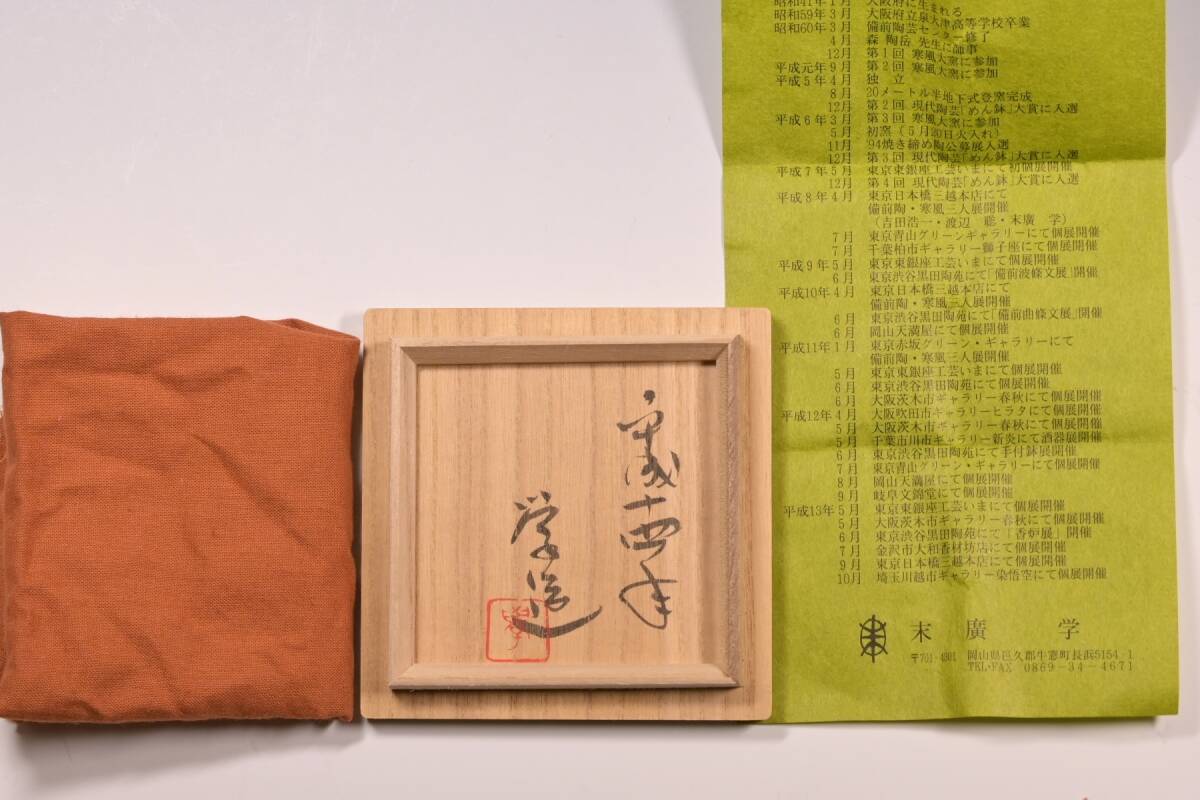 平成十四年
学造
昭和41年1月 大阪府に生まれる
昭和59年3月 大阪府立泉大津高等学校卒業
昭和60年3月 備前陶芸センター修了
4月 森 陶岳 先生に師事
12月 第1回 寒風大窯に参加
平成元年9月 第2回 寒風大窯に参加
平成5年4月 独 立
8月 20メートル半地下式登窯完成
12月 第2回 現代陶芸「めん鉢」大賞に入選
平成6年3月 第3回 寒風大窯に参加
5月 初窯(5月20日火入れ)
11月 '94焼き締め陶公募展入選
12月 第3回 現代陶芸「めん鉢」大賞に入選
平成7年5月 東京東銀座工芸いまにて初個展開催
12月 第4回 現代陶芸「めん鉢」大賞に入選
平成8年4月 東京日本橋三越本店にて
備前陶・寒風三人展開催
(吉田浩一・渡辺 聡・末廣 学)
7月 東京青山グリーンギャラリーにて個展開催
7月 千葉柏市ギャラリー獅子座にて個展開催
平成9年5月 東京東銀座工芸いまにて個展開催
6月 東京渋谷黒田陶苑にて「備前波條文展」開催
平成10年4月 東京日本橋三越本店にて
備前陶・寒風三人展開催
6月 東京渋谷黒田陶苑にて「備前曲條文展」開催
6月 岡山天満屋にて個展開催
平成11年1月 東京赤坂グリーン・ギャラリーにて
備前陶・寒風三人展開催
5月 東京東銀座工芸いまにて個展開催
6月 東京渋谷黒田陶苑にて個展開催
6月 大阪茨木市ギャラリー春秋にて個展開催
平成12年4月 大阪吹田市ギャラリーヒラタにて個展開催
5月 大阪茨木市ギャラリー春秋にて個展開催
5月 千葉市川市ギャラリー新炎にて酒器展開催
6月 東京渋谷黒田陶苑にて手付鉢展開催
7月 東京青山グリーン・ギャラリーにて個展開催
8月 岡山天満屋にて個展開催
9月 岐阜文錦堂にて個展開催
平成13年5月 東京東銀座工芸いまにて個展開催
5月 大阪茨木市ギャラリー春秋にて個展開催
6月 東京渋谷黒田陶苑にて「香炉展」開催
7月 金沢市大和香林坊店にて個展開催
9月 東京日本橋三越本店にて個展開催
10月 埼玉川越市ギャラリー染悟空にて個展開催
末廣 学
〒701-4301 岡山県邑久郡牛窓町長浜5154-1
TEL・FAX 0869-34-4671